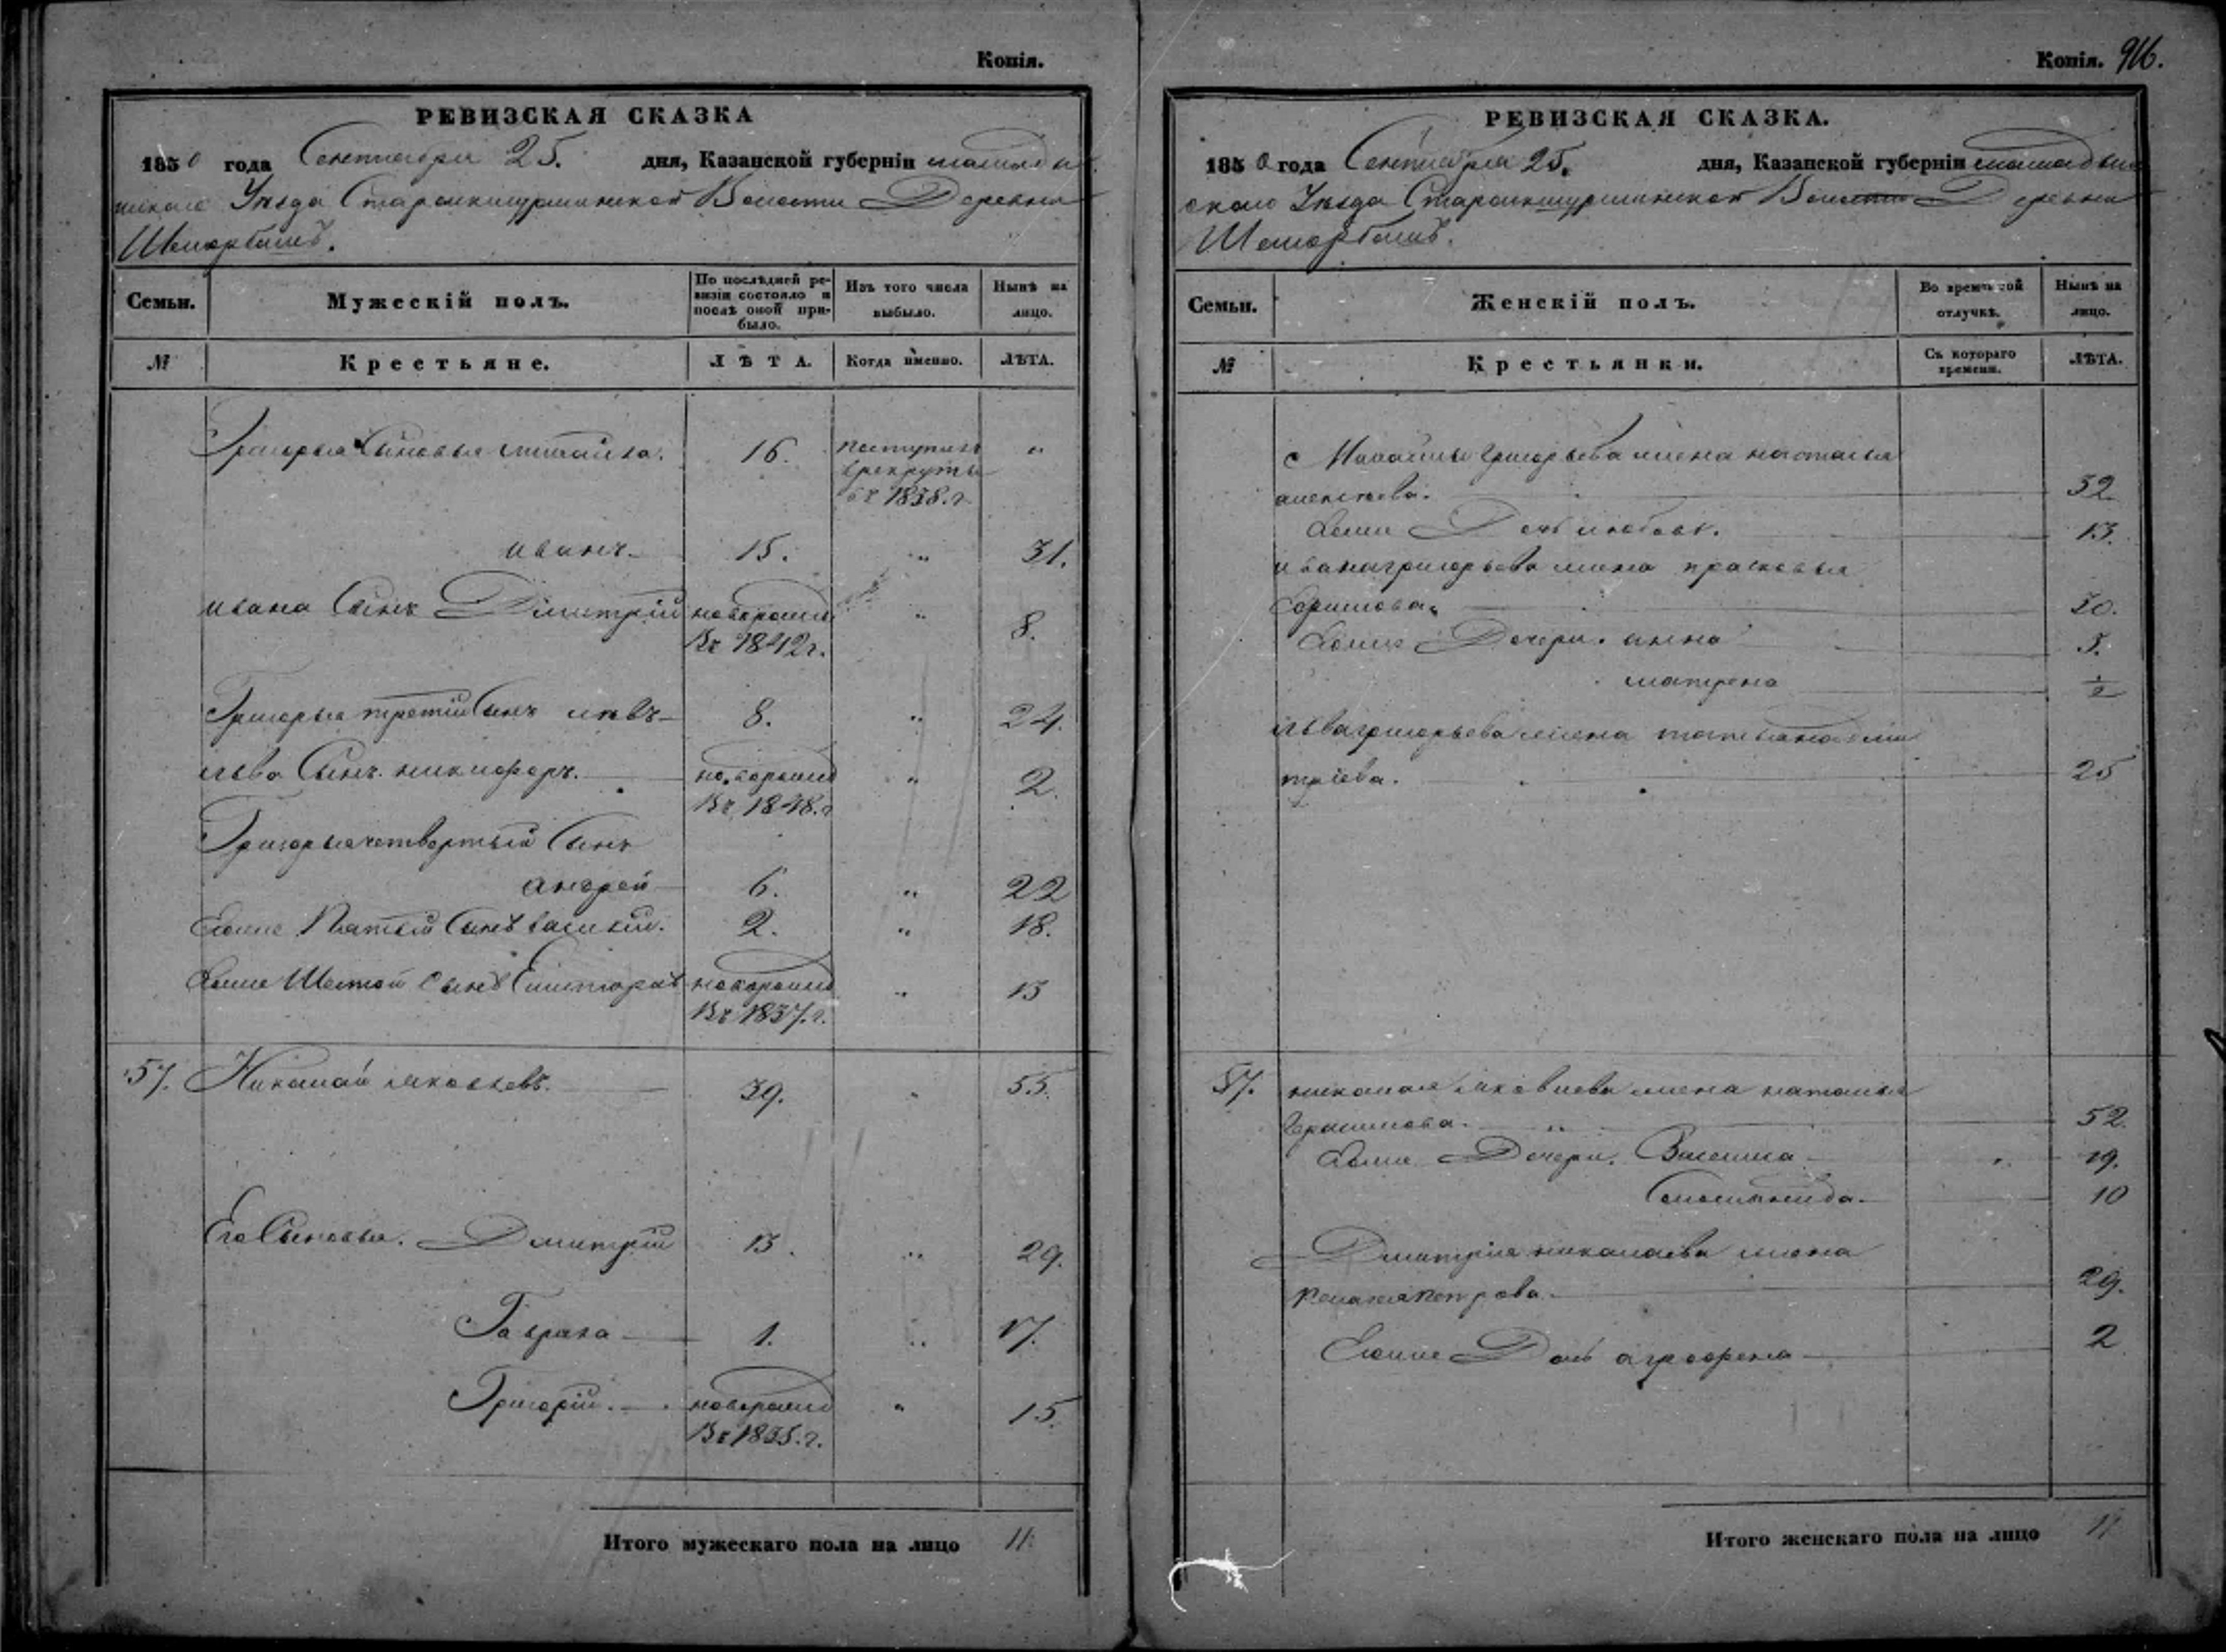 Копія.
РЕВИЗСКАЯ СКАЗКА
1850 года Сентября 25. дня, Казанской губерніи мамады
шскаго Уѣзда Староикшурминской Волости Деревни
Шеморбашъ.
Семьи. Мужескій полъ. По послѣдней ревизіи состояло и послѣ оной прибыло. Изъ того числа выбыло. Нынѣ на лицо.
№ Крестьяне. ЛѢТА. Когда именно. ЛѢТА.
Григорья Сыновья михаила. 16. поступилъ "
врекруты
въ 1838.г.
иванъ 15. " 31.
ивана Сынъ Дмитрій новорожд " 8.
Въ 1842г.
Григорья третій Сынъ левъ 8. " 24.
льва Сынъ никифоръ. новорожд " 2.
Въ 1848.г
Григорья четвертый Сынъ
андрей 6. " 22
Егоже Пятый Сынъ василій. 2. " 18.
Егоже Шестой Сынъ новорожд " 13
Въ 1837.г.
57. Николай яковлевъ. 39. " 55.
Его Сыновья. Дмитрій 13. " 29.
Гаврила 1. " 17.
Григорій. новорожд " 15.
Въ 1835.г.
Итого мужескаго пола на лицо 11.
Копія. 916.
РЕВИЗСКАЯ СКАЗКА.
1850 года Сентября 25. дня, Казанской губерніи мамадыш
скаго Уѣзда Староикшурминской Волости Деревни
Шеморбашъ.
Семьи. Женскій полъ. Во временной отлучкѣ. Нынѣ на лицо.
№ Крестьянки. Съ котораго времени. ЛѢТА.
Михайлы григорьева жена наталья
алексѣева. 32
Егоже Дочь любовь. 13.
ивана григорьева жена прасковья
30.
Егоже Дочери. анна 5.
матрена 1/2
льва григорьева жена татьяна дми
тріева. 25
57. николая яковлева жена наталья
Герасимова. " 52.
Егоже Дочери. Василиса " 19.
10
Дмитрія николаева жена
петрова. 29.
Егоже Дочь агрофена 2
Итого женскаго пола на лицо 11